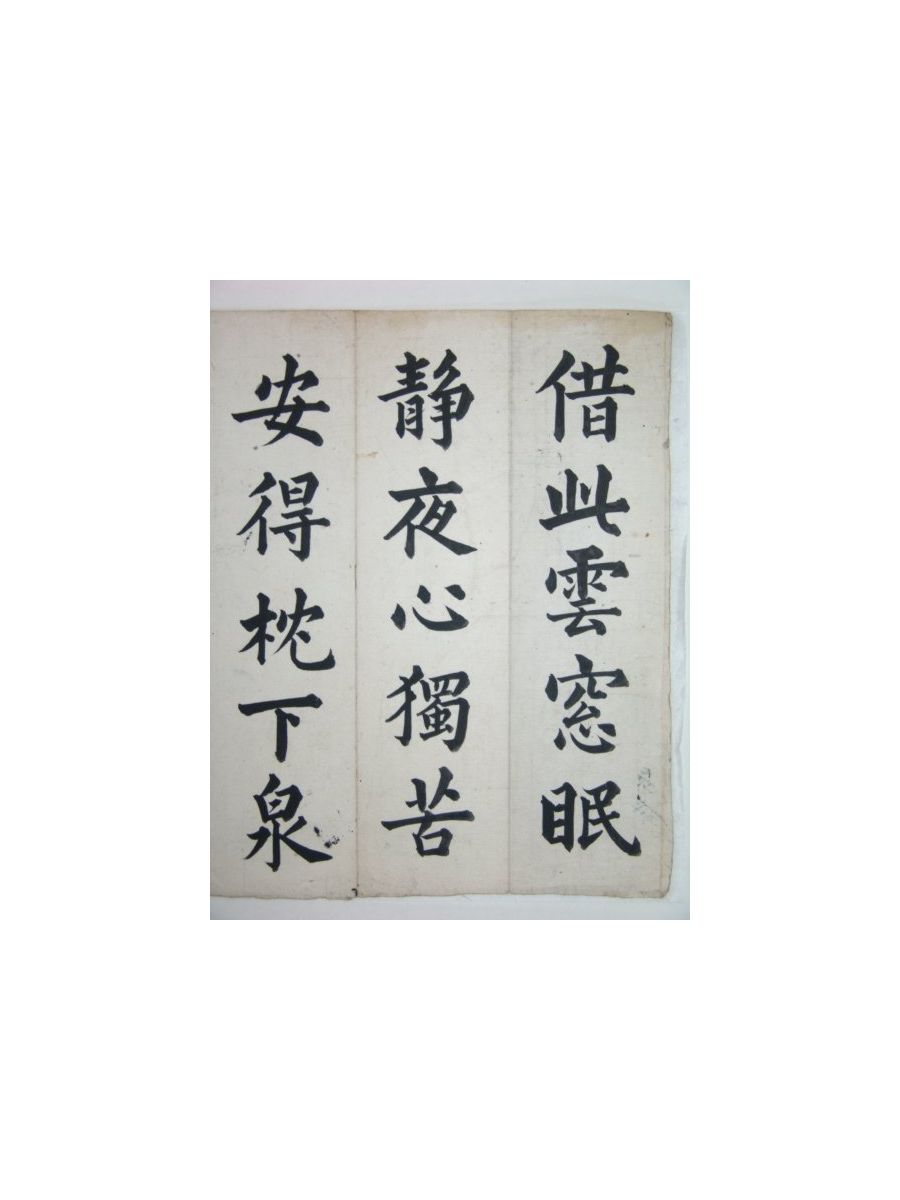 借此雲窓眠
静夜心獨苦
安得枕下泉